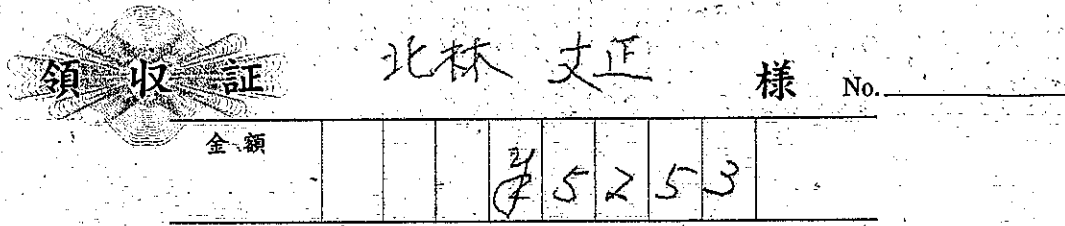 領収証 北林 丈正 様 No.
金額 ¥5253